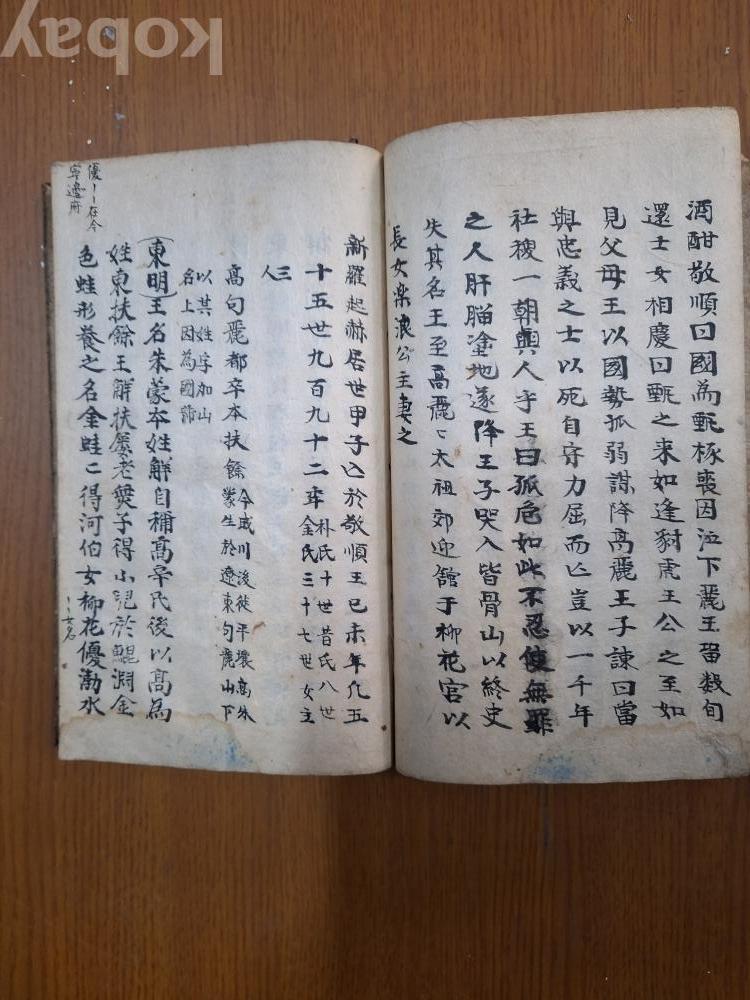 酒酣敬順曰國為甄椓喪因泣下麗王留数旬
還士女相慶曰甄之来如逢豺虎王公之至如
見父母王以國勢孤弱謀降高麗王子諫曰當
與忠義之士以死自守力屈而亡豈以一千年
社稷一朝與人乎王曰孤危如此不忍使無罪
之人肝腦塗地遂降王子哭入皆骨山以終史
失其名王至高麗〻太祖郊迎館于柳花宮以
長女楽浪公主妻之
新羅起赫居世甲子亡於敬順王己未年凡五
十五世九百九十二年 朴氏十世昔氏八世
金氏三十七世女主
三人
高句麗都卒本扶餘 今成川後徙平壤高朱
蒙生於遼東句麗山下
以其姓字加山
名上因為國號
(東明)王名朱蒙本姓解自稱高辛氏後以高為
姓東扶餘王解扶婁老無子得小兒於鯤淵金
色蛙形養之名金蛙〻得河伯女柳花優渤水
優〻在今
寧邊府
〻〻女名
kobay